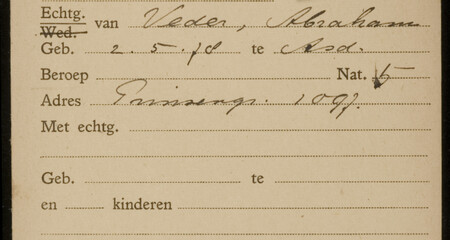 Echtg. van Veder, Abraham
Wed.
Geb. 2.5.78 te Asd.
Beroep Nat.
Adres Prinsengr. 1097
Met echtg.
Geb. te
en kinderen